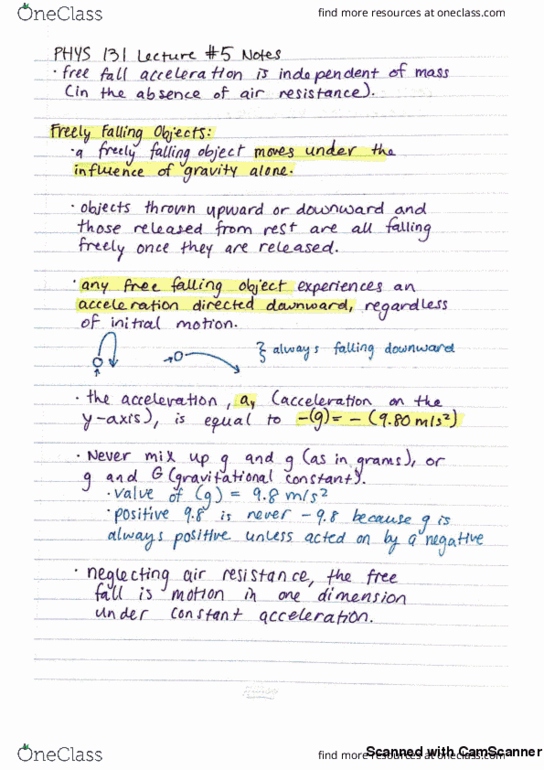 OneClass
find more resources at oneclass.com
PHYS 131 Lecture #5 Notes
· free fall acceleration is independent of mass
(in the absence of air resistance).
Freely Falling Objects:
· a freely falling object moves under the
influence of gravity alone.
· objects thrown upward or downward and
those released from rest are all falling
freely once they are released.
· any free falling object experiences an
acceleration directed downward, regardless
of initial motion.
} always falling downward
· the acceleration, ay (acceleration on the
y-axis), is equal to -(g) = - (9.80 m/s²)
· Never mix up g and g (as in grams), or
g and G (gravitational constant).
· value of (g) = 9.8 m/s²
· positive 9.8 is never -9.8 because g is
always positive unless acted on by a negative
· neglecting air resistance, the free
fall is motion in one dimension
under constant acceleration.
OneClass
find more resources at oneclass.com
Scanned with CamScanner